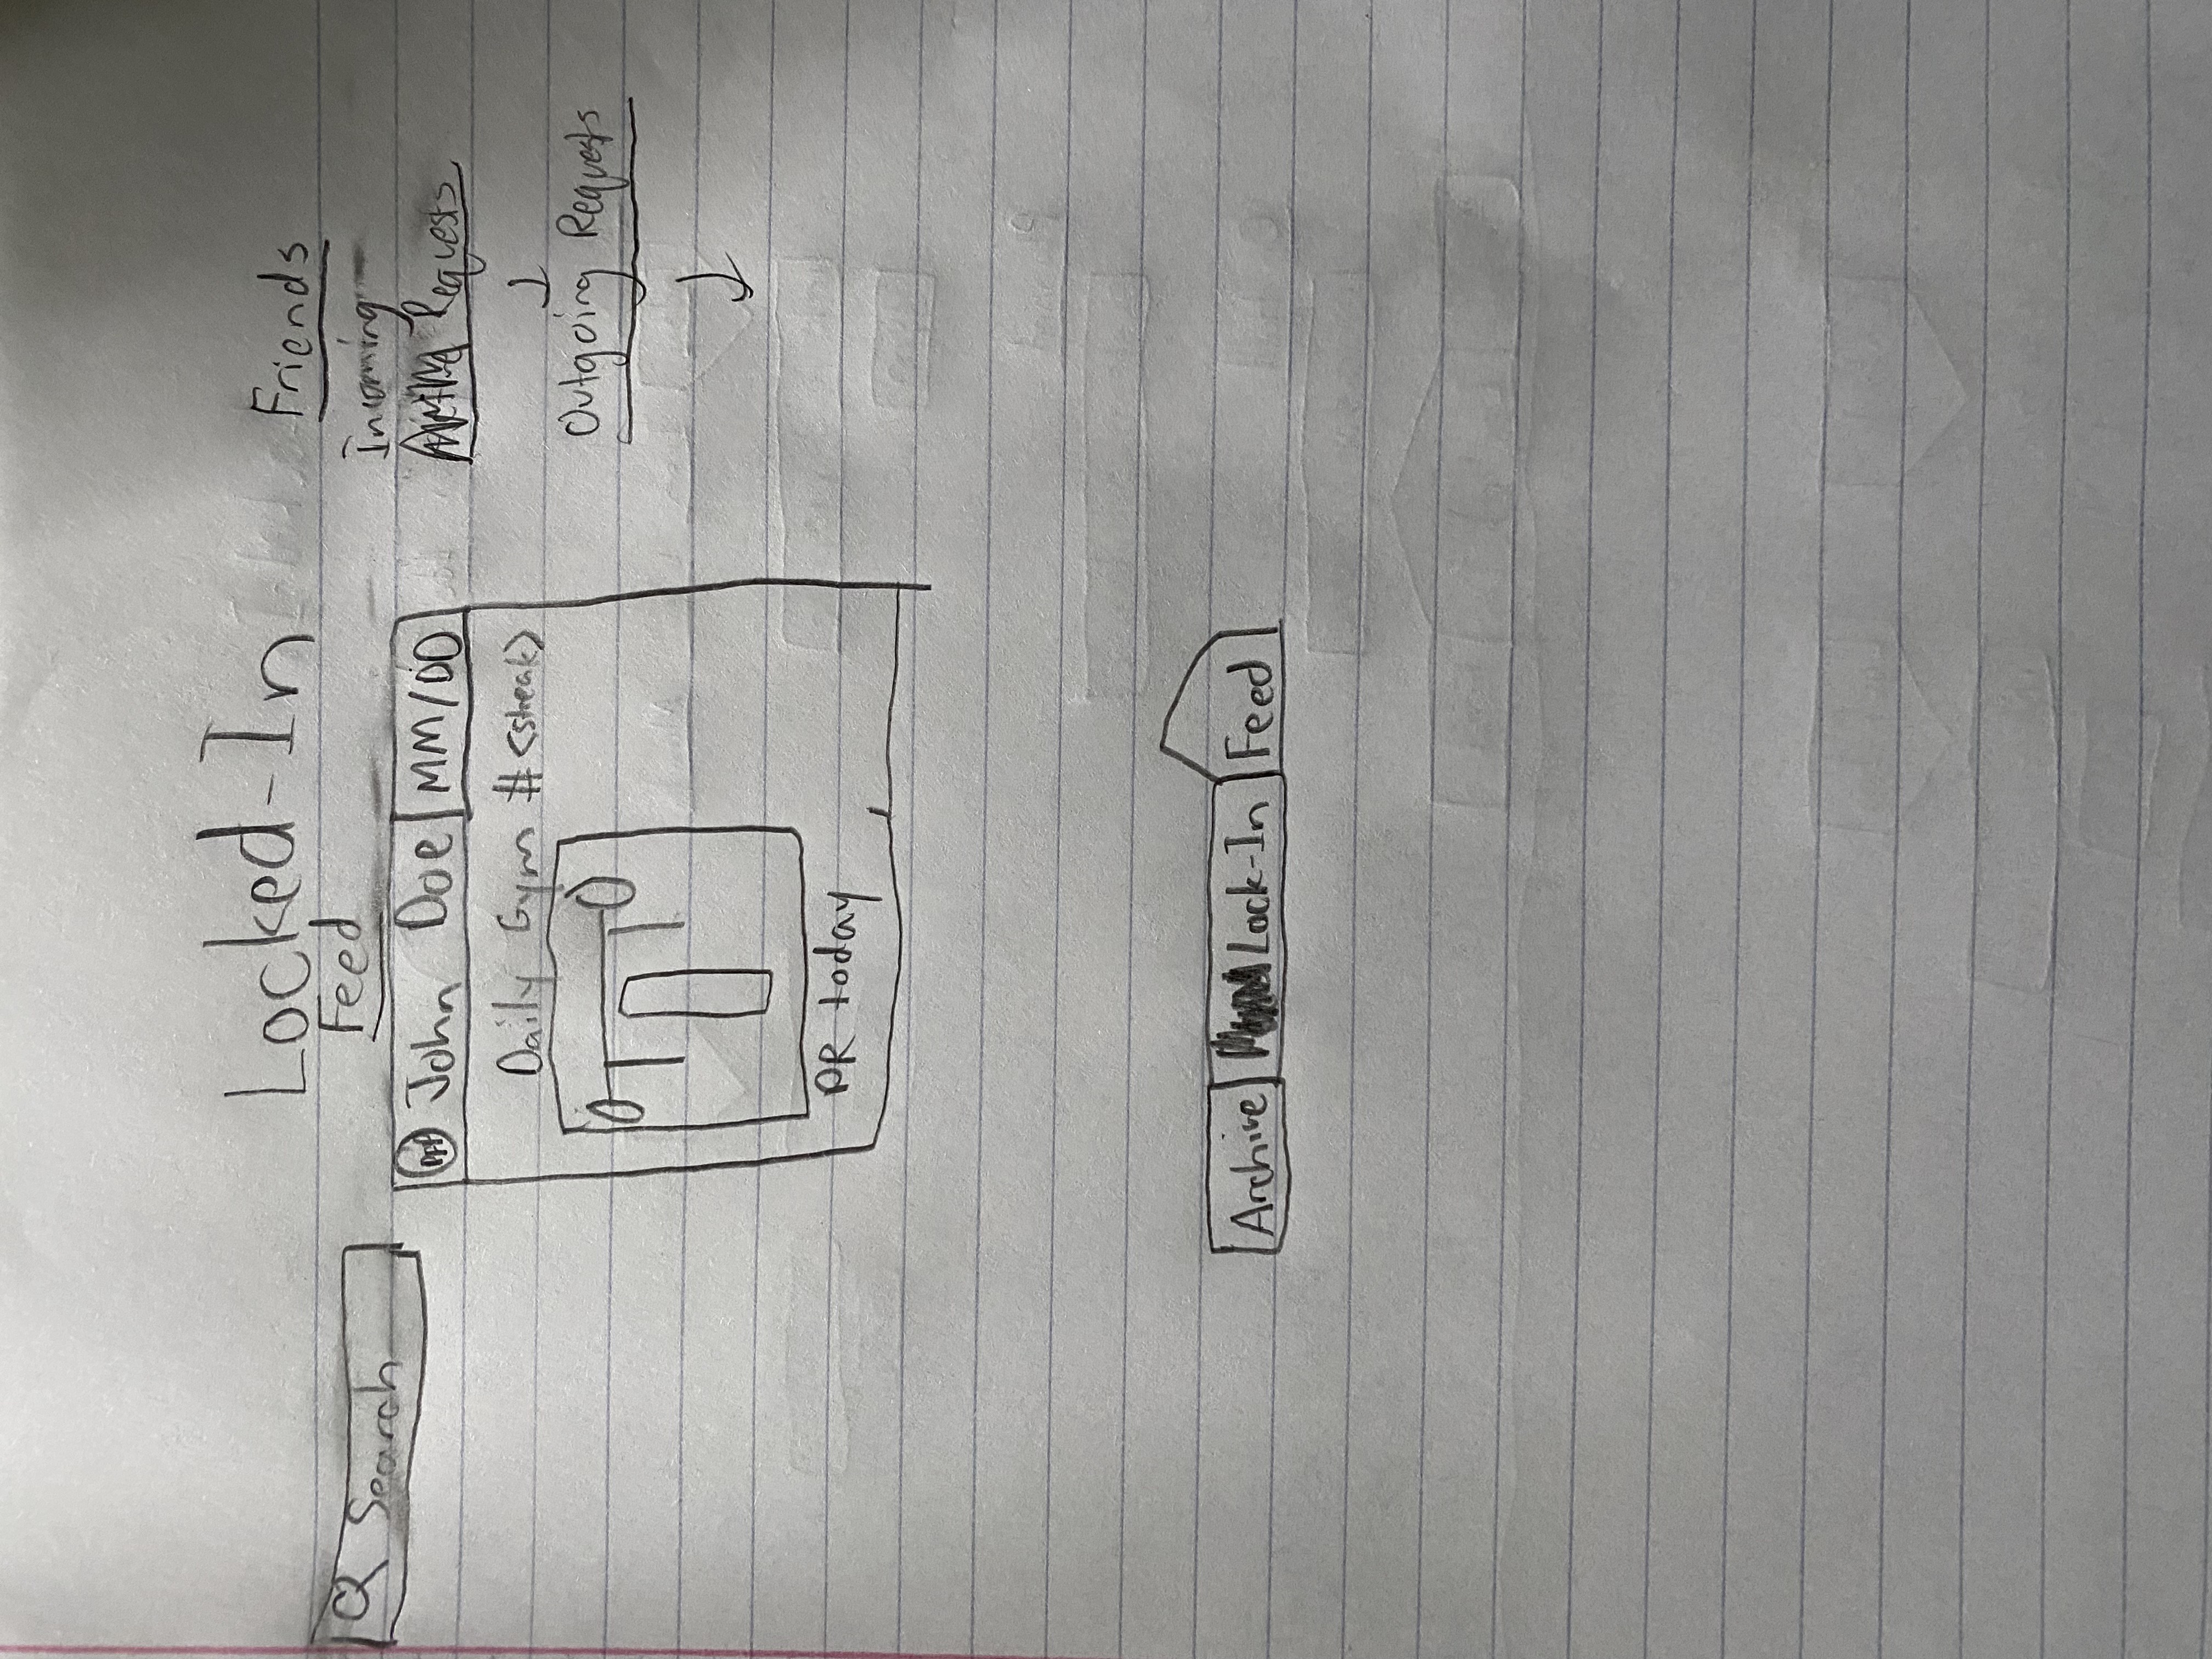 Locked-In
Feed
Search
John Doe MM/DD
Daily Gym #<streak>
PR today
Friends
Incoming
Requests
Outgoing Requests
Archive Lock-In Feed